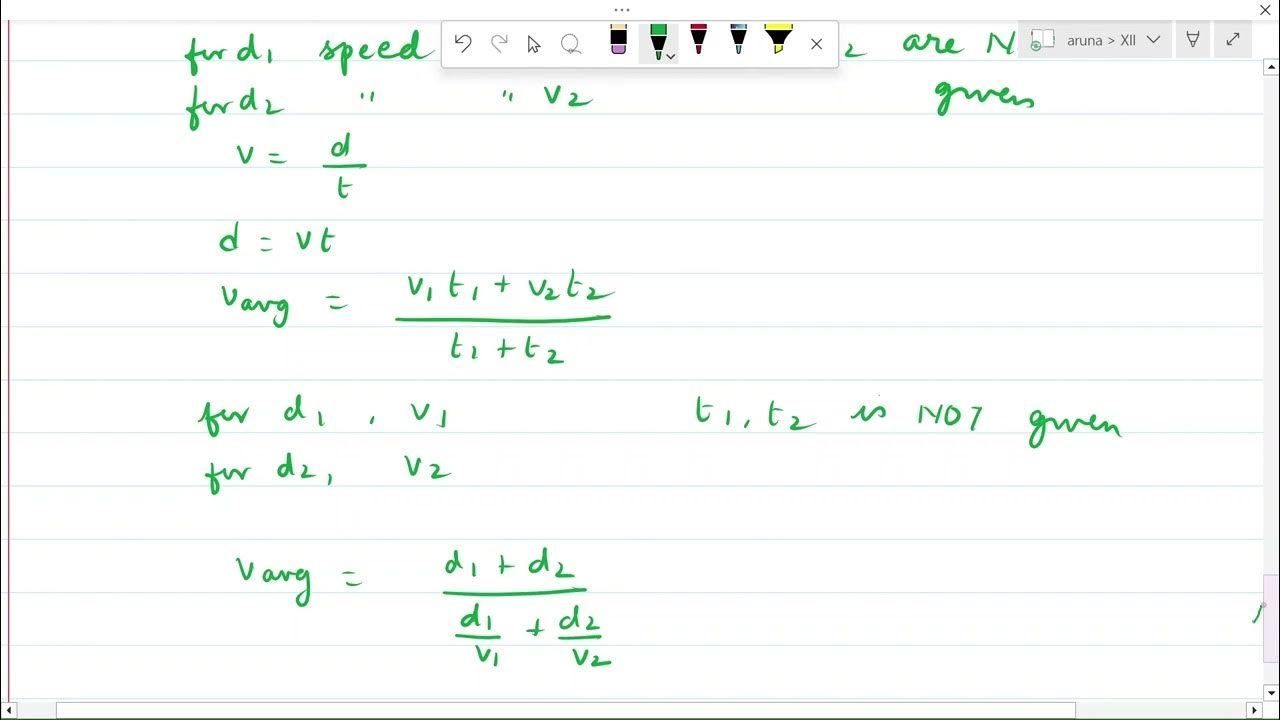 for d1 speed 2 are N
arun > XII
for d2 " " v2 given
v = d/t
d = vt
vavg = v1 t1 + v2 t2 / t1 + t2
for d1, v1 t1, t2 is NOT given
for d2, v2
vavg = d1 + d2 / d1/v1 + d2/v2